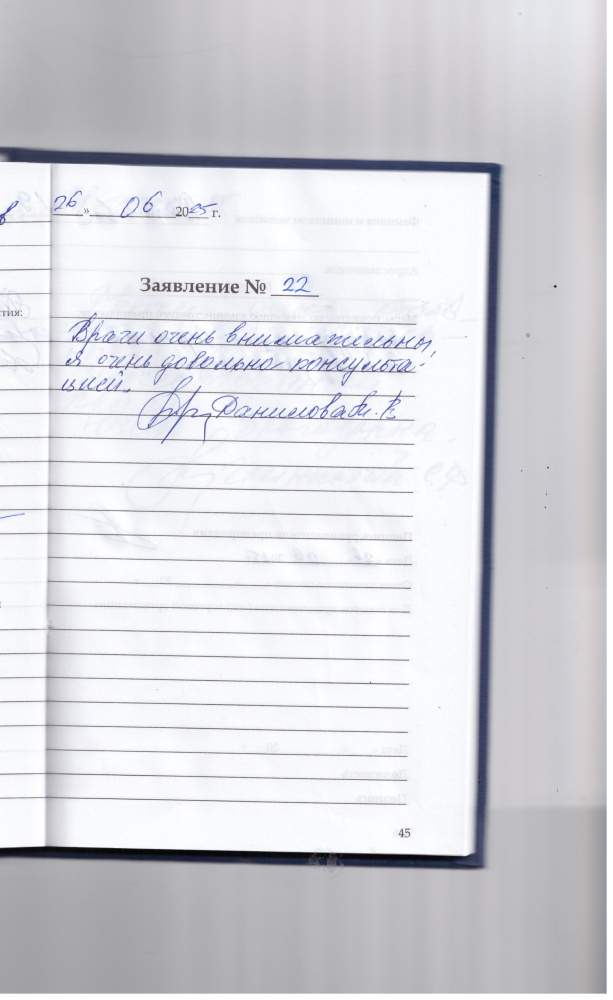 26 » 06 2025 г.
Заявление № 22
тия:
Врачи очень внимательны,
я очень довольна консульта-
цией.
Данилова
45